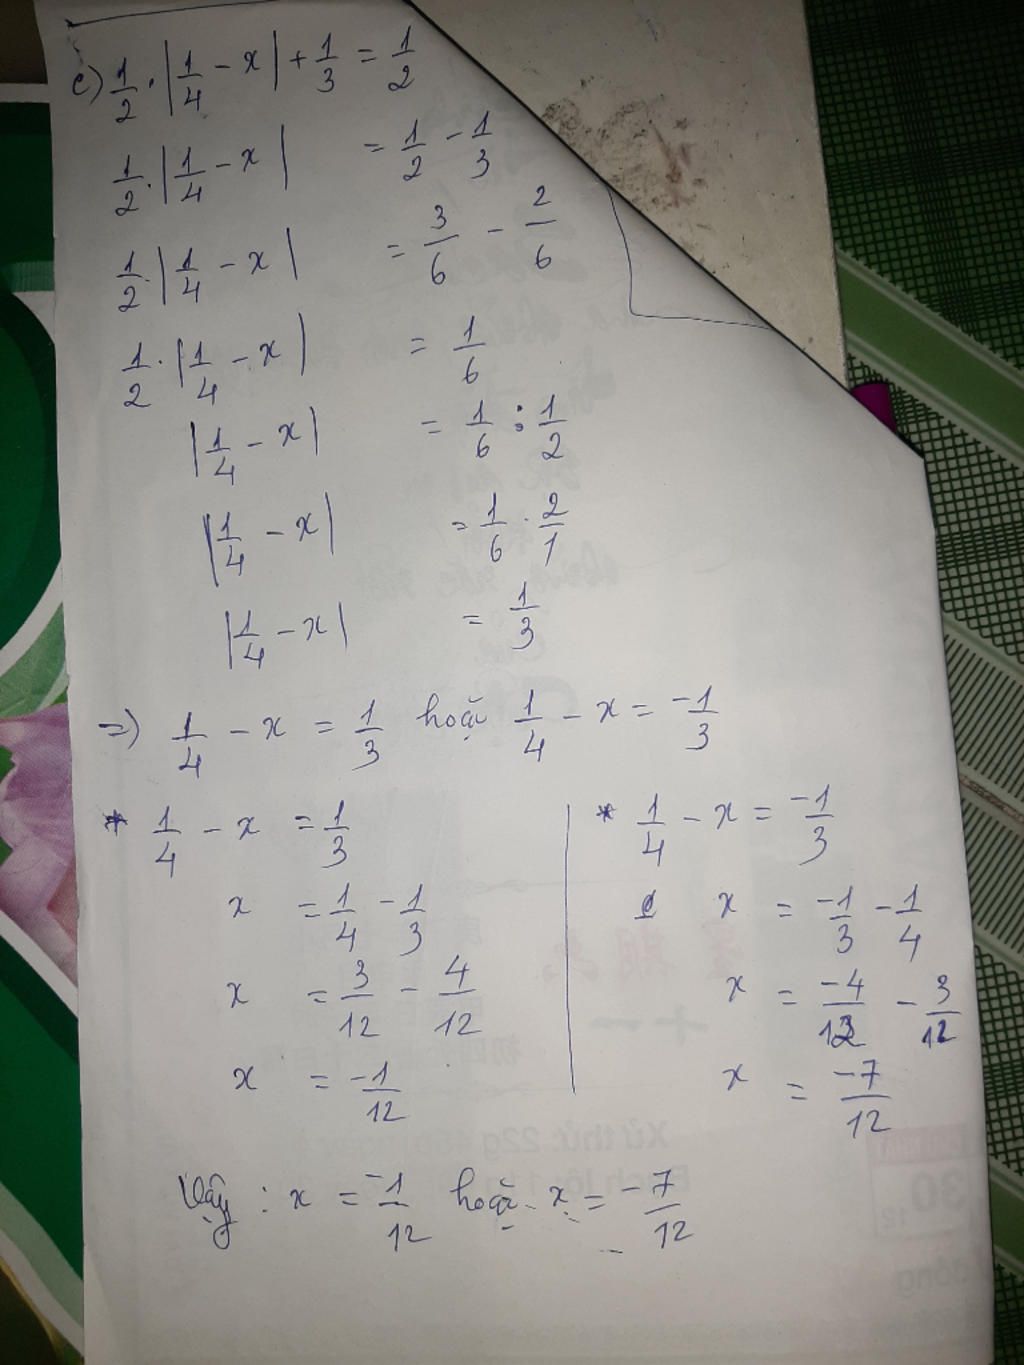 c) 1/2 . |1/4 - x| + 1/3 = 1/2
1/2 . |1/4 - x| = 1/2 - 1/3
1/2 . |1/4 - x| = 3/6 - 2/6
1/2 . |1/4 - x| = 1/6
|1/4 - x| = 1/6 : 1/2
|1/4 - x| = 1/6 . 2/1
|1/4 - x| = 1/3
=) 1/4 - x = 1/3 hoặc 1/4 - x = -1/3
* 1/4 - x = 1/3
x = 1/4 - 1/3
x = 3/12 - 4/12
x = -1/12
* 1/4 - x = -1/3
x = -1/3 - 1/4
x = -4/12 - 3/12
x = -7/12
Vậy : x = -1/12 hoặc x = -7/12